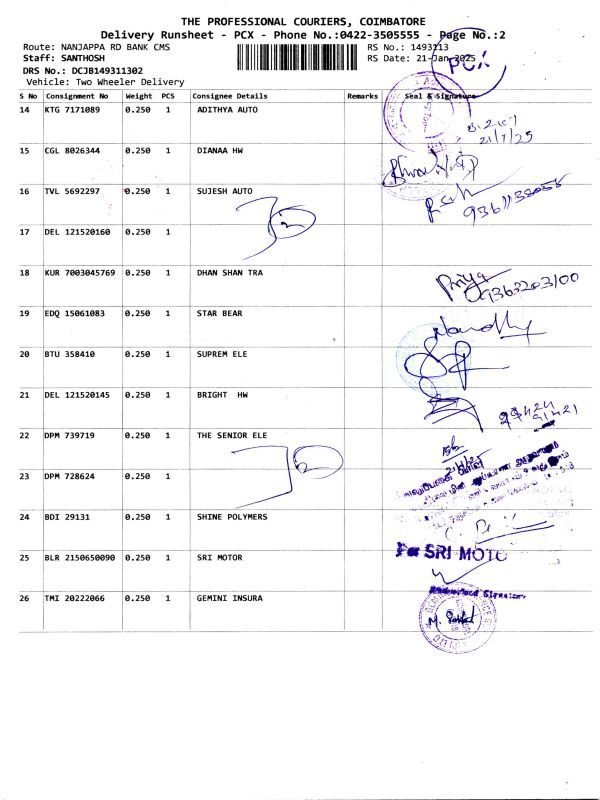 THE PROFESSIONAL COURIERS, COIMBATORE
Delivery Runsheet - PCX - Phone No.:0422-3505555 - Page No.:2
Route: NANJAPPA RD BANK CMS RS No.: 1493113
Staff: SANTHOSH RS Date: 21-Jan-2025
PCX
DRS No.: DCJB149311302
Vehicle: Two Wheeler Delivery
S No Consignment No Weight PCS Consignee Details Remarks Seal & Signature
14 KTG 7171089 0.250 1 ADITHYA AUTO
21/1/25
15 CGL 8026344 0.250 1 DIANAA HW
16 TVL 5692297 0.250 1 SUJESH AUTO
17 DEL 121520160 0.250 1
18 KUR 7003045769 0.250 1 DHAN SHAN TRA Priya
9363203100
19 EDQ 15061083 0.250 1 STAR BEAR
20 BTU 358410 0.250 1 SUPREM ELE
21 DEL 121520145 0.250 1 BRIGHT HW
22 DPM 739719 0.250 1 THE SENIOR ELE
23 DPM 728624 0.250 1
24 BDI 29131 0.250 1 SHINE POLYMERS
25 BLR 2150650090 0.250 1 SRI MOTOR For SRI MOTO
Authorised Signatory
26 TMI 20222066 0.250 1 GEMINI INSURA